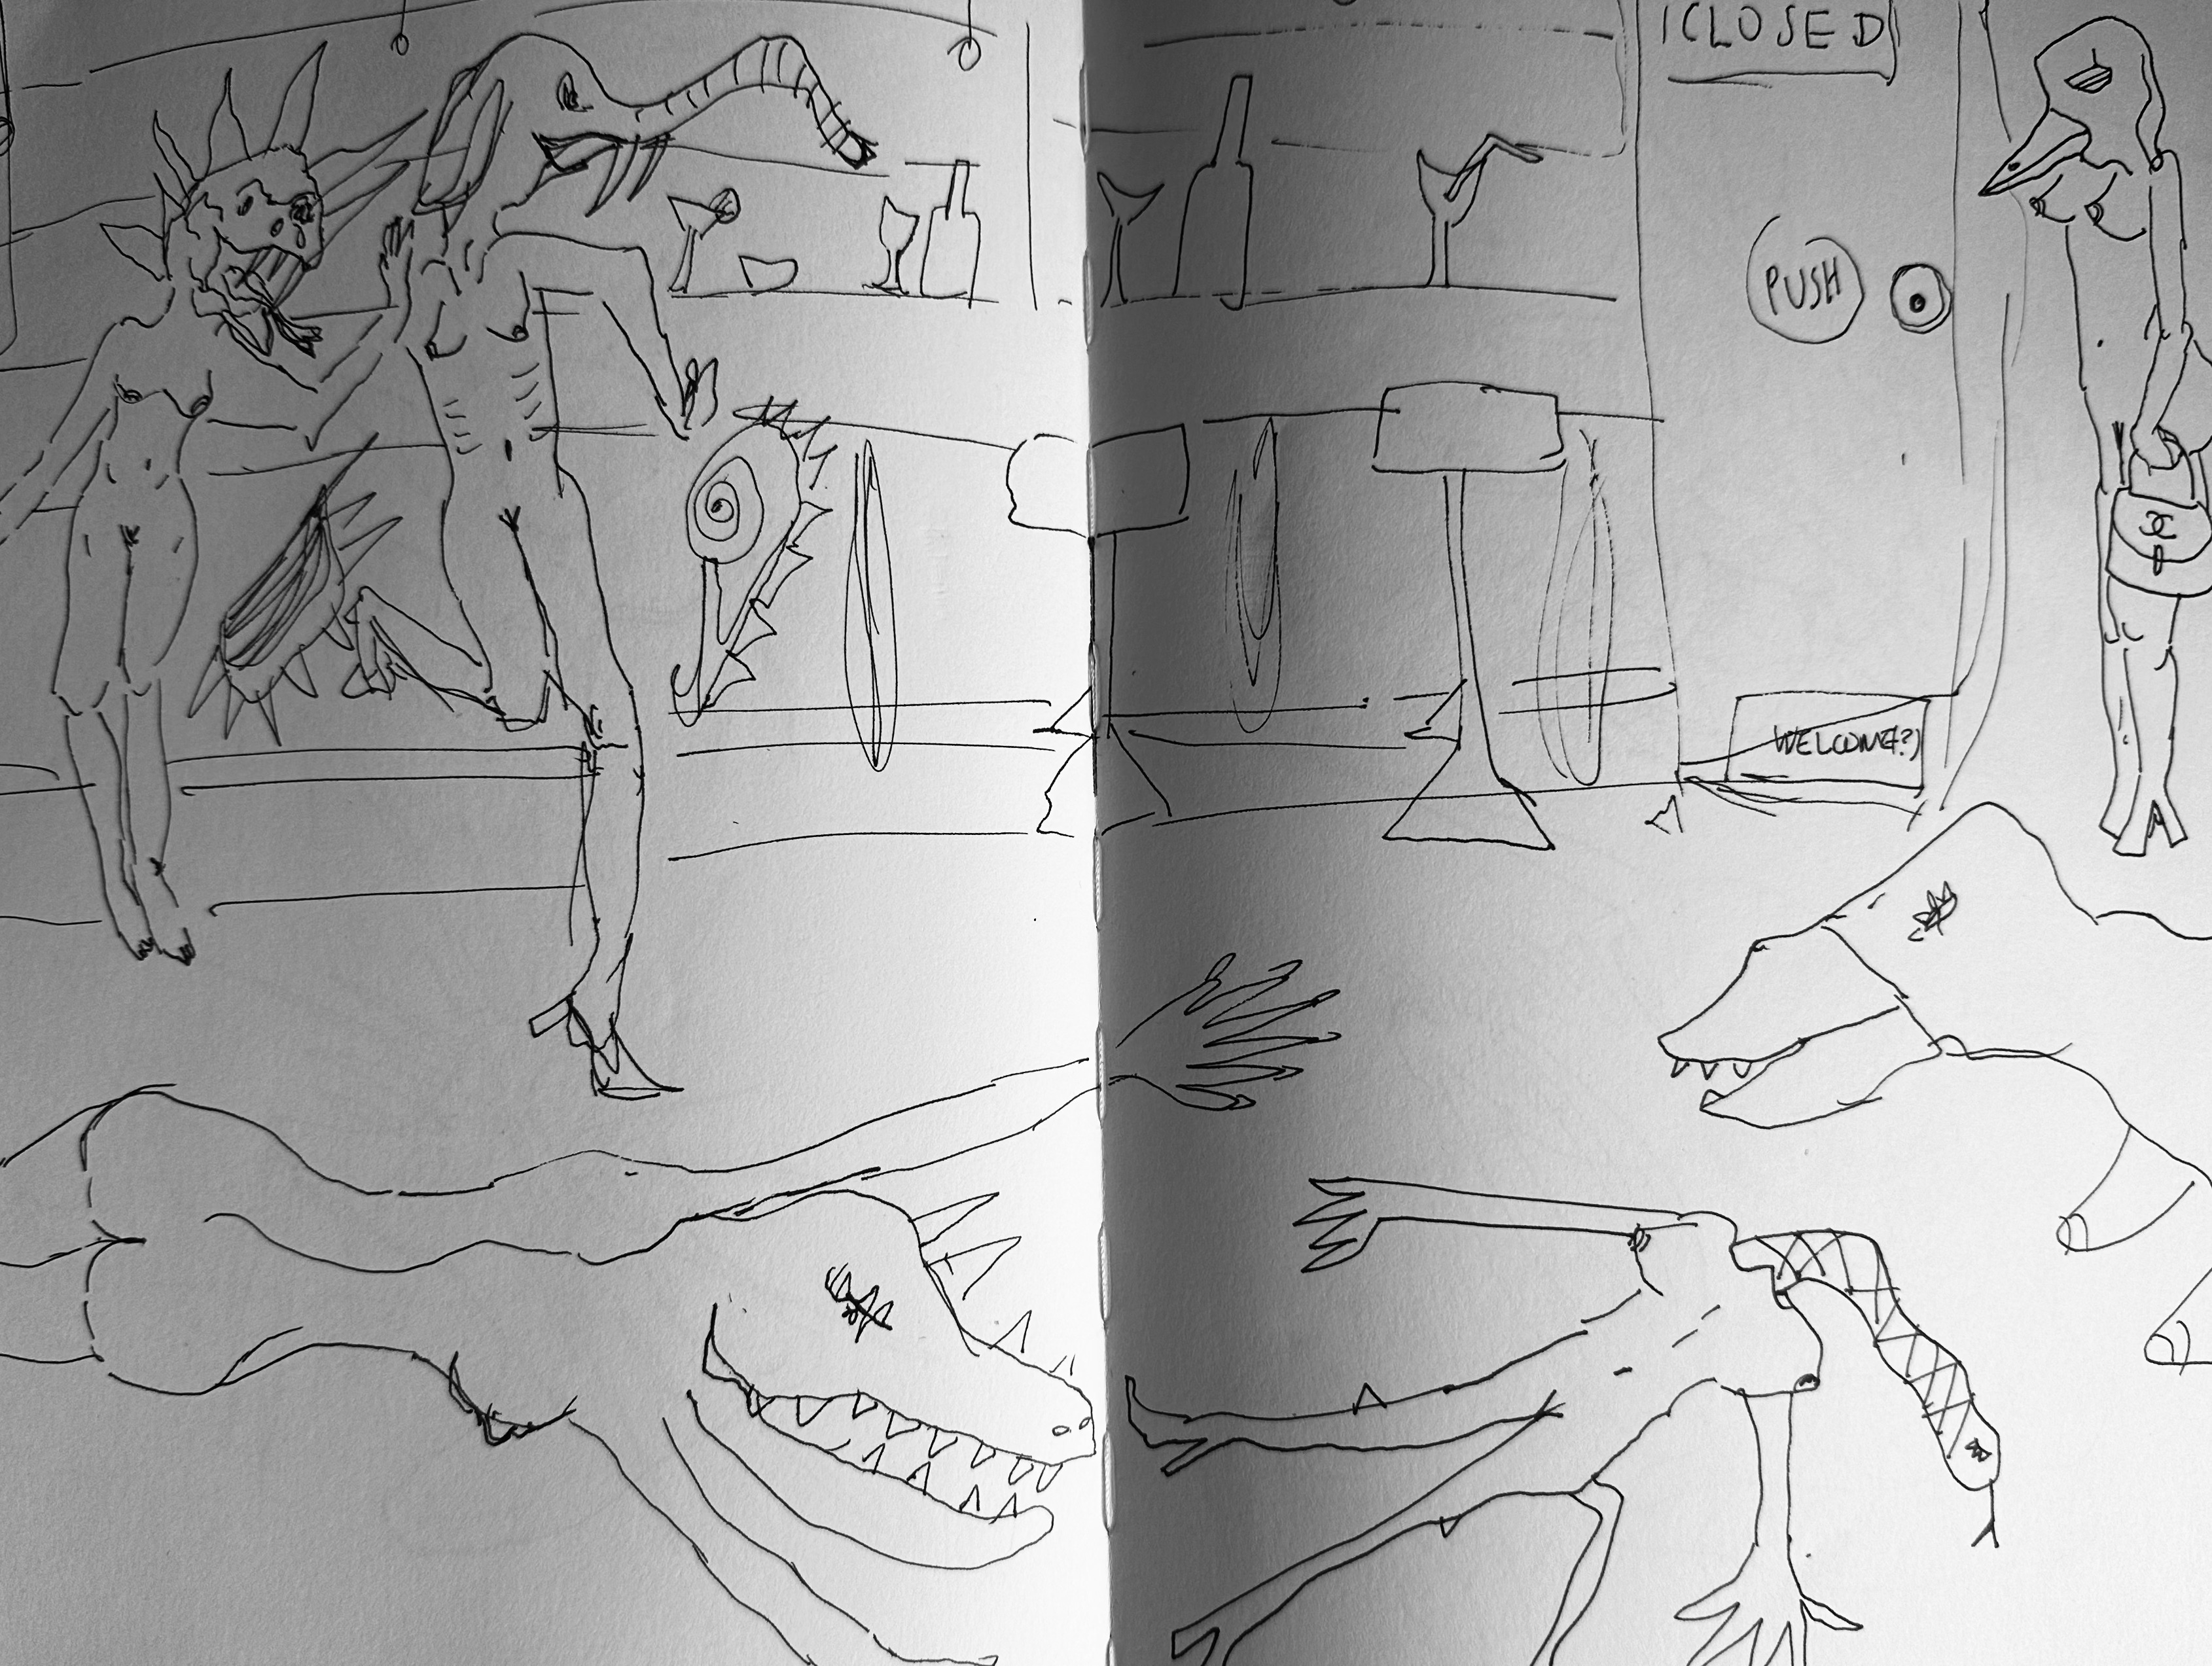 CLOSED
PUSH
WELCOME(?)